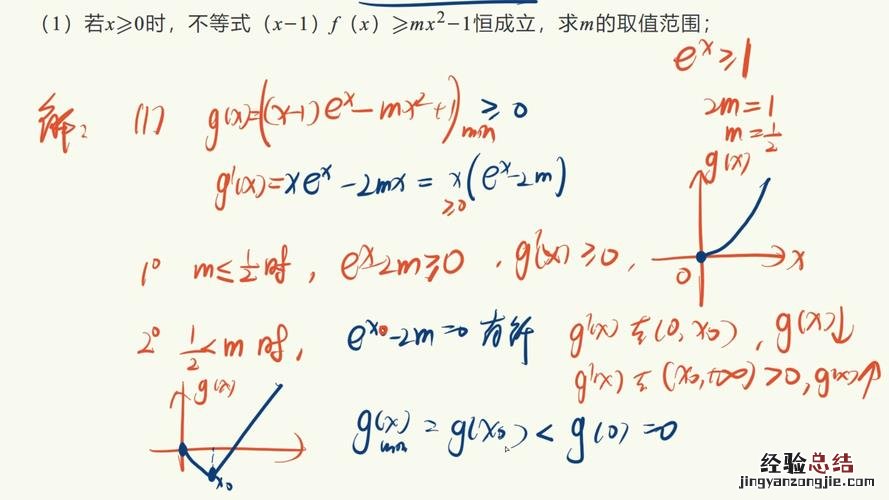 (1)若x≥0时,不等式(x-1)f(x)≥mx²-1恒成立,求m的取值范围;
eˣ≥1
2m=1
m=1/2
解: (1) g(x)=((x-1)eˣ-mx²+1)min ≥0
g'(x)=xeˣ-2mx=x(eˣ-2m)
≥0
g(x)
0 x
1° m≤1/2时, eˣ-2m≥0, g'(x)≥0,
2° 1/2<m时, eˣ⁰-2m=0有解 g'(x)在(0,x₀), g(x)↓
g'(x)在(x₀,+∞)>0, g(x)↑
g(x)
x₀
g(x)min=g(x₀)<g(0)=0
经验总结
jingyanzongjie.com